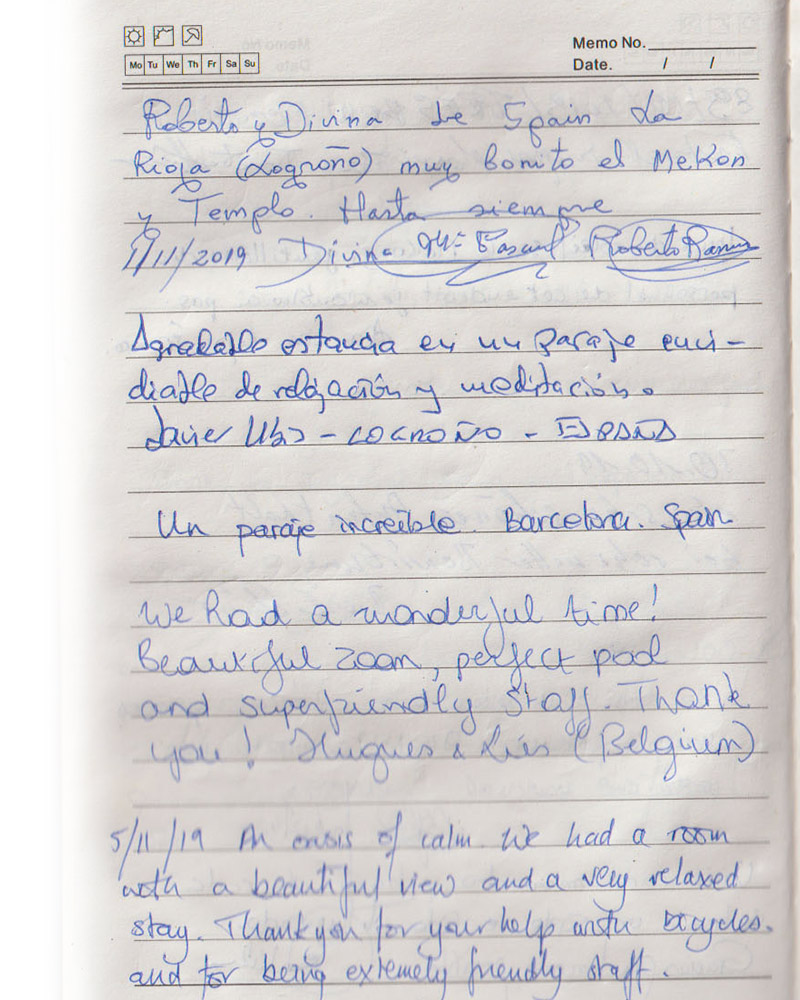 Memo No.
Mo Tu We Th Fr Sa Su
Date. / /
Roberto y Divina de Spain La
Rioja (Logroño) muy bonito el MeKon
y Templo. Hasta siempre
1/11/2019 Divina Mª Pascual Roberto Ramos
Agradable estancia en un paraje envi-
diable de relajación y meditación.
Javier - LOGROÑO - ESPAÑA
Un paraje increíble. Barcelona. Spain
We had a wonderful time!
Beautiful room, perfect pool
and superfriendly staff. Thank
you! Hugues & Lies (Belgium)
5/11/19 An oasis of calm. We had a room
with a beautiful view and a very relaxed
stay. Thank you for your help with bicycles.
and for being extremely friendly staff.